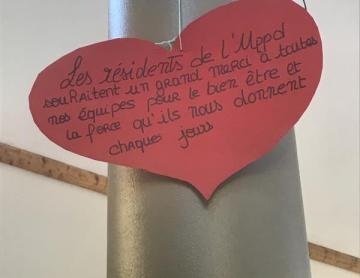 Les résidents de l'Uppd
souhaitent un grand merci à toutes
nos équipes pour le bien être et
la force qu'ils nous donnent
chaque jours